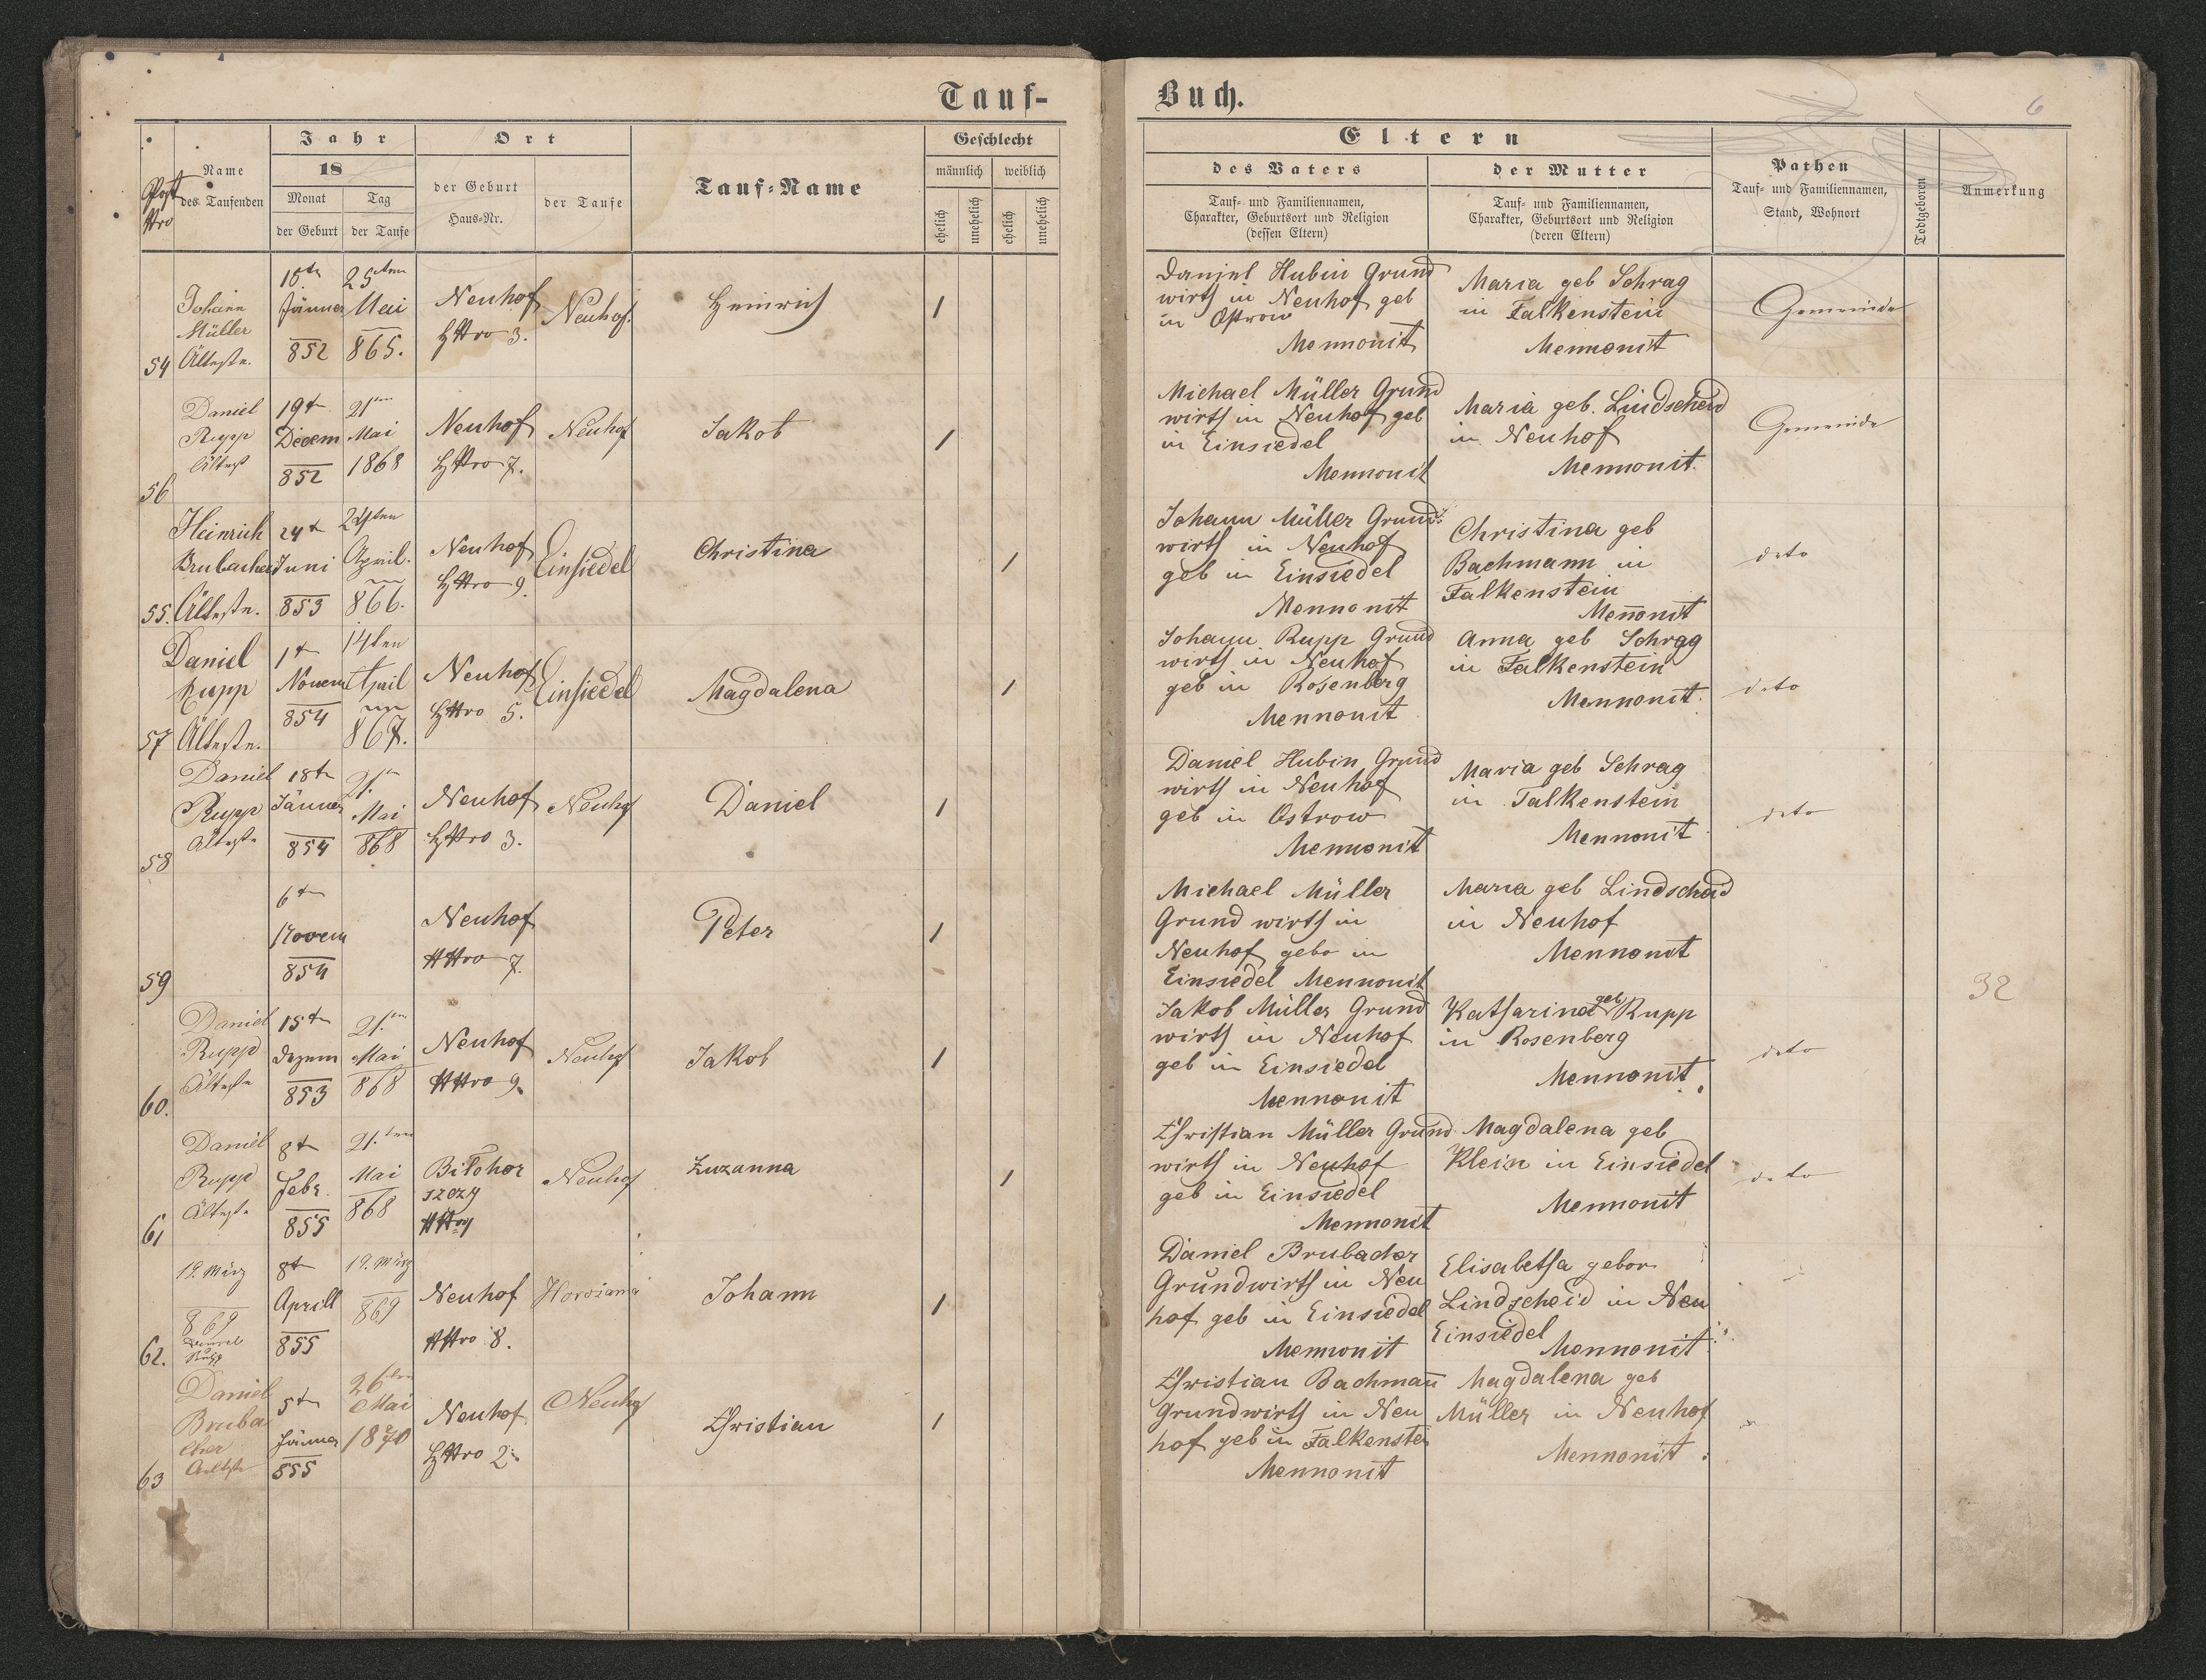 Tauf-
Buch.
6
Post Nro
Name des Taufenden
Jahr
18
Monat der Geburt
Tag der Taufe
Ort
der Geburt
Haus-Nr.
der Taufe
Tauf-Name
Geschlecht
männlich
weiblich
ehelich
unehelich
ehelich
unehelich
Eltern
des Vaters
Tauf- und Familiennamen,
Charakter, Geburtsort und Religion
(dessen Eltern)
der Mutter
Tauf- und Familiennamen,
Charakter, Geburtsort und Religion
(deren Eltern)
Pathen
Tauf- und Familiennamen,
Stand, Wohnort
Todtgeboren
Anmerkung
54
Johann
Müller
Älteste.
Jänner
852
25ten
Mai
865.
Neuhof
HNro 3.
Neuhof.
Heinrich
1
Daniel Hubin Grund
wirth in Neuhof geb
in Ostrow
Mennonit
Maria geb Schrag
in Falkenstein
Mennonit
Gemeinde
56
Daniel
Rupp
Ältest
19t
Decem
852
21ten
Mai
1868
Neuhof
HNro 7.
Neuhof
Jakob
1
Michael Müller Grund
wirth in Neuhof geb
in Einsiedel
Mennonit
Maria geb. Lindscheid
in Neuhof
Mennonit.
Gemeinde
55.
Heinrich
Brubacher
Älteste.
24t
Juni
853
April.
866.
Neuhof
HNro 9.
Einsiedel
Christina
1
Johann Müller Grund
wirth in Neuhof
geb in Einsiedel
Mennonit
Christina geb
Bachmann in
Falkenstein
Menonit
deto
57
Daniel
Rupp
Älteste.
1t
Novem
854
14ten
April
867.
Neuhof
HNro 5.
Einsiedel
Magdalena
1
Johann Rupp Grund
wirth in Neuhof
geb in Rosenberg
Mennonit
Anna geb Schrag
in Falkenstein
Mennonit.
deto
58
Daniel
Rupp
Älteste
18t
Jänner
854
21.ten
Mai
868
Neuhof
HNro 3.
Neuhof
Daniel
1
Daniel Hubin Grund
wirth in Neuhof
geb in Ostrow
Mennonit
Maria geb Schrag
in Falkenstein
Mennonit
deto
59
6t
Novem
854
Neuhof
HNro 7.
Peter
1
Michael Müller
Grund wirth in
Neuhof gebo in
Einsiedel Mennonit
Maria geb Lindscheid
in Neuhof
Mennonit
32
60.
Daniel
Rupp
Älteste
15t
Dezem
853
21.ten
Mai
868
Neuhof
HNro 9.
Neuhof
Jakob
1
Jakob Müller Grund
wirth in Neuhof
geb in Einsiedel
Mennonit
Katharina geb Rupp
in Rosenberg
Mennonit.
deto
61
Daniel
Rupp
Älteste
8t
Febr.
855
21.ten
Mai
868
Bilohor
szczy
Neuhof
Zuzanna
1
Christian Müller Grund
wirth in Neuhof
geb in Einsiedel
Mennonit
Magdalena geb
Klein in Einsiedel
Mennonit
deto
62.
19. März
869
Daniel
Rupp
8t
Aprill
855
19. März
869
Neuhof
HNro 8.
Johann
1
Daniel Brubacher
Grundwirth in Neu
hof geb in Einsiedel
Mennonit
Elisabetha gebor
Lindscheid in Neu
Einsiedel
Mennonit
63
Daniel
Bruba
cher
Aelteste
5t
Jänner
855
26ten
Mai
1870
Neuhof
HNro 2.
Neuhof
Christian
1
Christian Bachman
Grundwirth in Neu
hof geb in Falkenstei
Mennonit
Magdalena geb
Müller in Neuhof
Mennonit